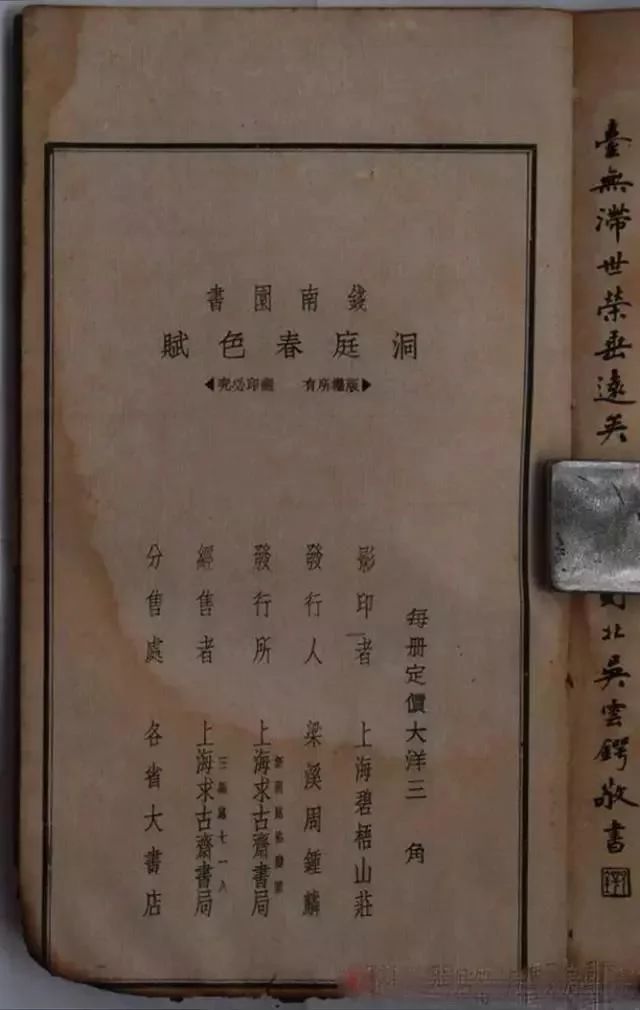 臺無滯世榮垂遠矣
北吳雲鍔敬書
錢南園書
洞庭春色賦
版權所有 翻印必究
每册定價大洋三角
影印者 上海碧梧山莊
發行人 梁溪周鍾麟
發行所 上海求古齋書局
經售者 上海求古齋書局
分售處 各省大書店